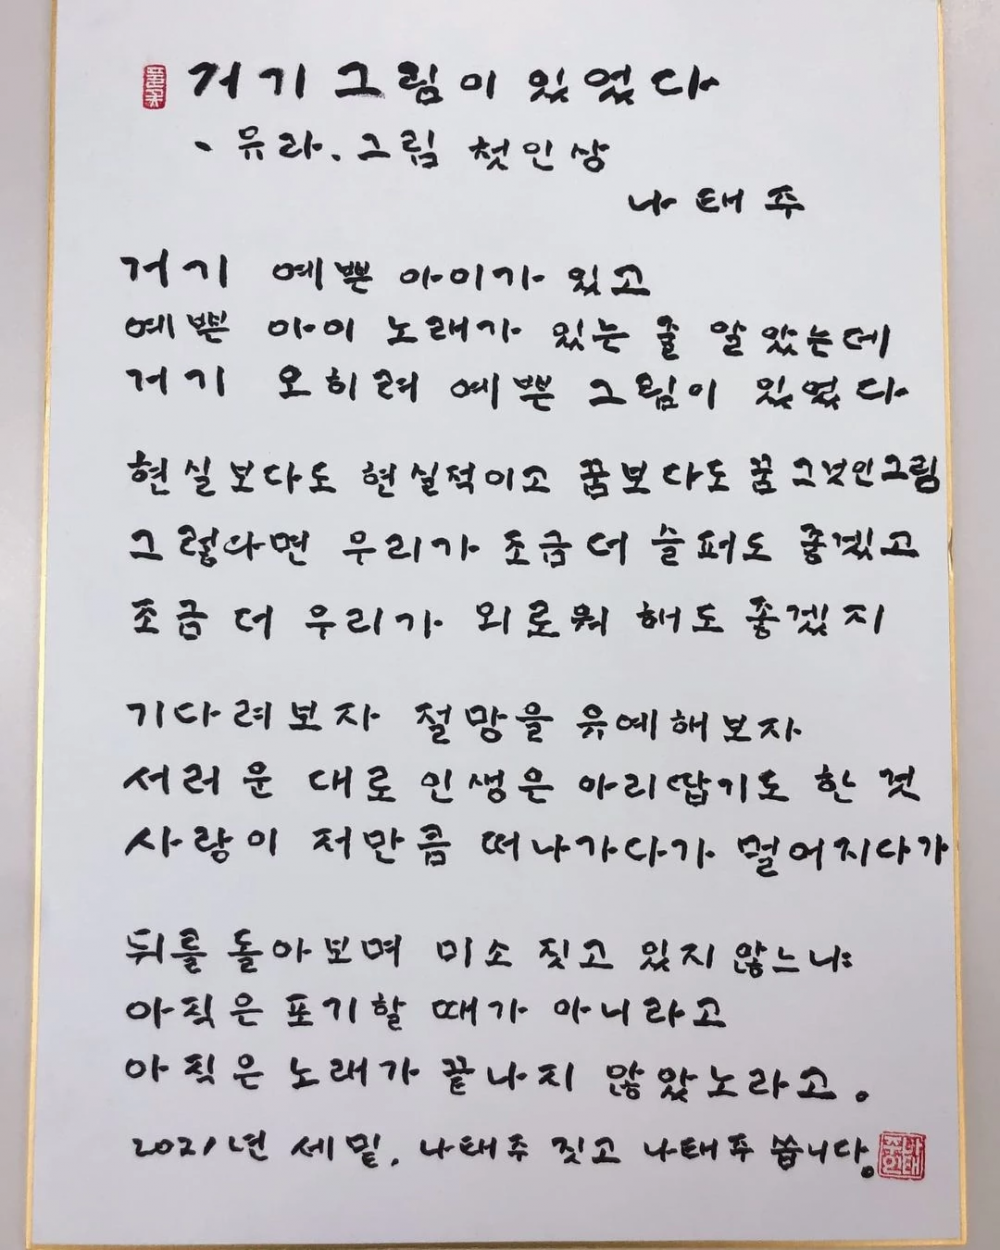 풀꽃
거기 그림이 있었다
- 유라. 그림 첫인상
나태주
거기 예쁜 아이가 있고
예쁜 아이 노래가 있는 줄 알았는데
거기 오히려 예쁜 그림이 있었다
현실보다도 현실적이소 꿈보다도 꿈 그것인 그림
그렇다면 우리가 조금 더 슬퍼도 좋겠고
조금 더 우리가 외로워 해도 좋겠지
기다려보자 절망을 유예해보자
서러운 대로 인생은 아리땁기도 한 것
사랑이 저만큼 떠나가다가 멀어지다가
뒤를 돌아보며 미소 짓고 있지 않느냐
아직은 포기할 때가 아니라고
아직은 노래가 끝나지 않았노라고.
2021년 세밑, 나태주 짓고 나태주 씁니다.